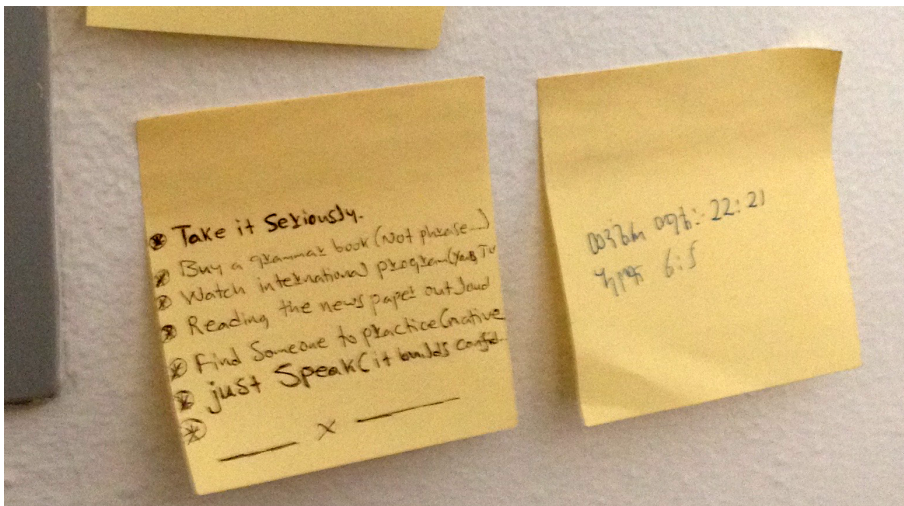 Take it Seriously.
Buy a grammar book (Not phrase...)
Watch international program (You Tu
Reading the news paper out loud
Find Someone to practice (native
just Speak (it builds confid-
x
22:21
6:5